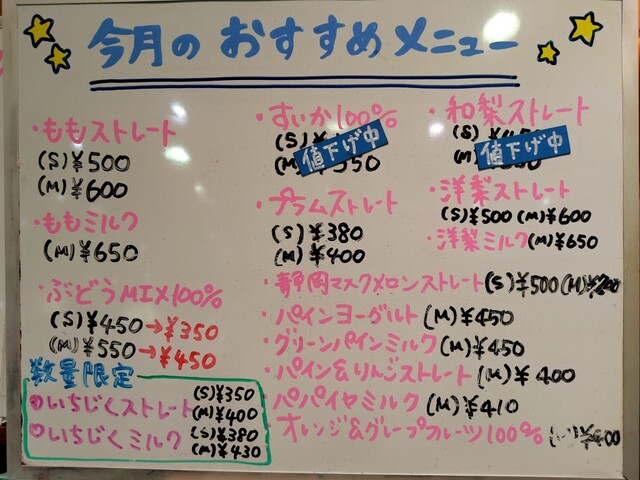 今月の おすすめメニュー
・ももストレート
(S)¥500
(M)¥600
・ももミルク
(M)¥650
・ぶどうMIX100%
(S)¥450→¥350
(M)¥550→¥450
数量限定
いちじくストレート (S)¥350
(M)¥400
いちじくミルク (S)¥380
(M)¥430
・すいか100%
(S)
値下げ中
(M) 350
・プラムストレート
(S)¥380
(M)¥400
・静岡マスクメロンストレート(S)¥500(M)
・パインヨーグルト(M)¥450
・グリーンパインミルク(M)¥450
・パイン&りんごストレート(M)¥400
・パパイヤミルク(M)¥410
・オレンジ&グレープフルーツ100%
・和梨ストレート
(S)
値下げ中
(M)
・洋梨ストレート
(S)¥500 (M)¥600
・洋梨ミルク(M)¥650